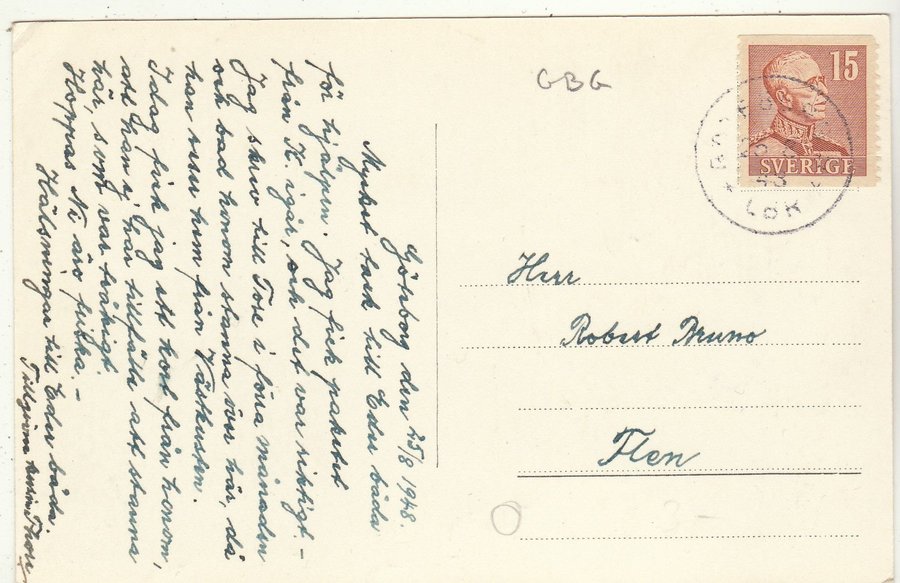 Göteborg den 25/8 1948.
Mycket tack till Eder båda
för hjälpen. Jag fick paketet
från K. igår, och det var riktigt. -
Jag skrev till Tore i förra månaden
och bad honom stanna över här, då
han reser hem från Västkusten.
Idag fick jag ett kort från honom,
att han ej har tillfälle att stanna
här, som var tråkigt.
Hoppas Ni äro friska. -
Hälsningar till Eder båda.
Tillgivne
GBG
15
SVERIGE
LBR
Herr
Robert Bruno
Flen
3-